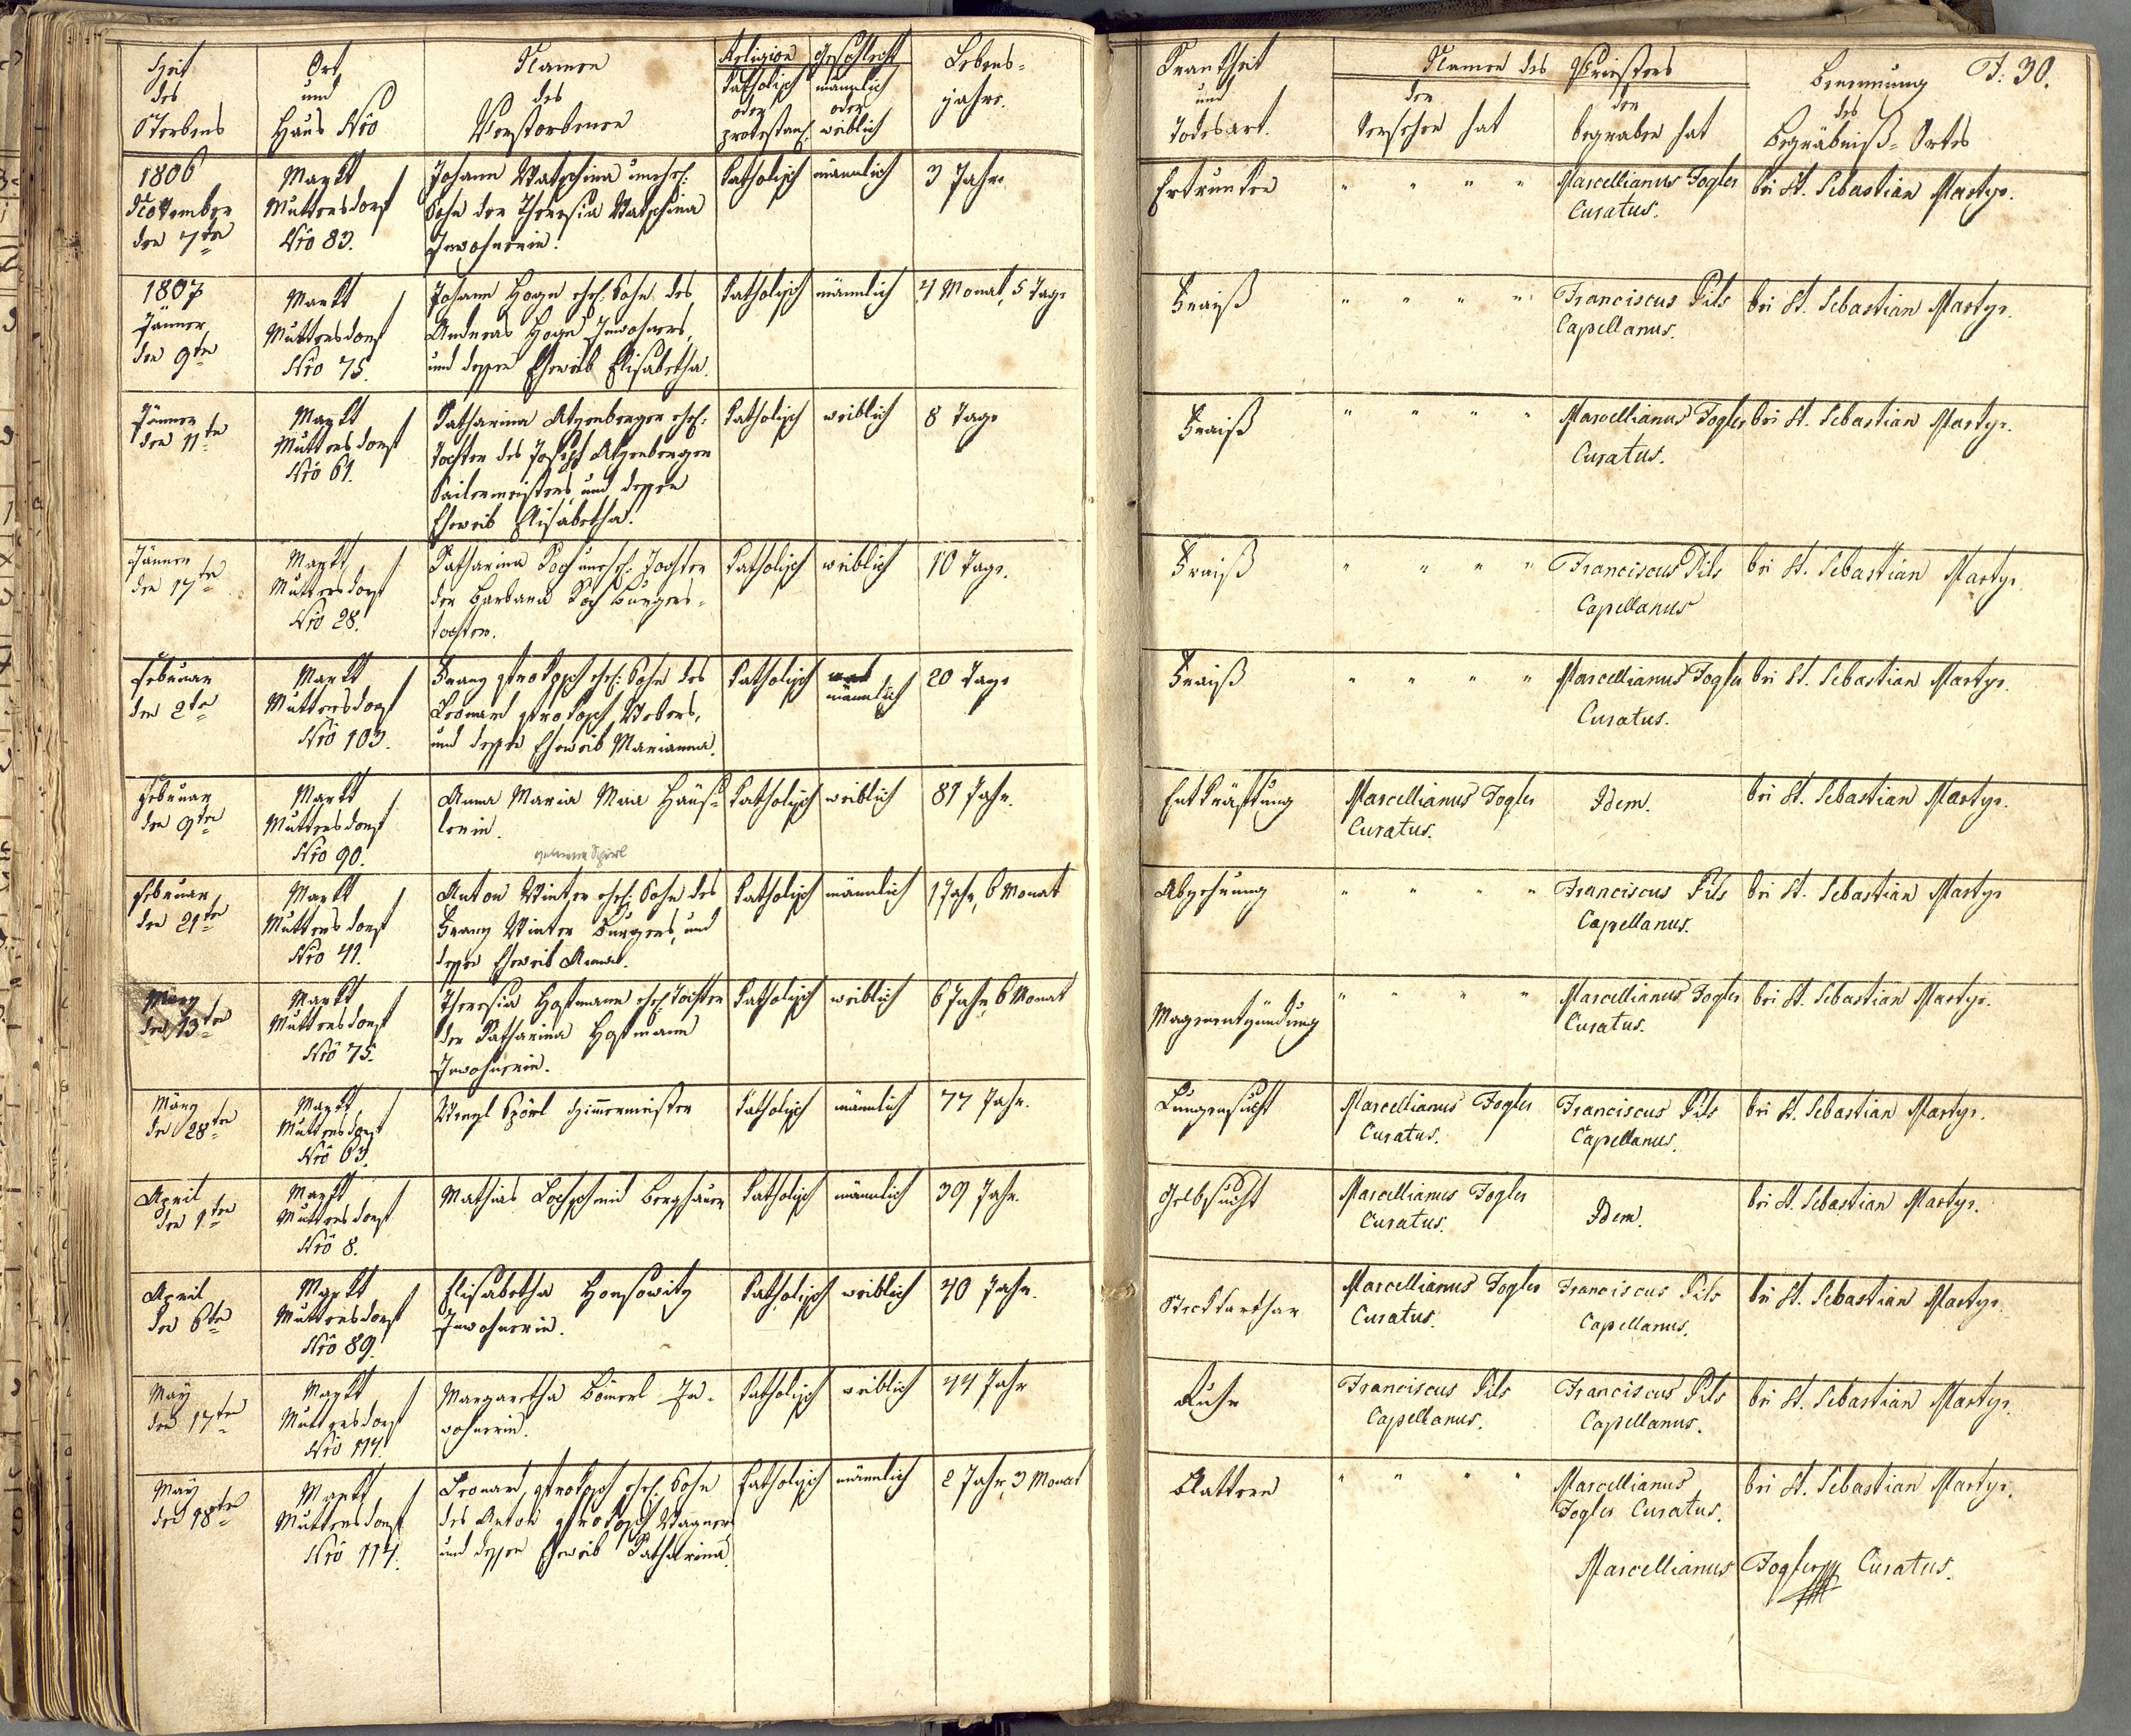 Zeit
des
Sterbens
Ort
und
Haus Nro
Namen
des
Verstorbenen
Religion
Katholisch
oder
protestant:
Geschlecht
männlich
oder
weiblich
Lebens-
jahre.
Krankheit
und
Todesart.
Namen des Priesters
der
Versehen hat
der
begraben hat
Benennung
des
Begräbniß-Ortes
F: 30.
1806
November
den 7ten
Markt
Muttersdorf
Nro 83.
Johann Watschina unehel:
Sohn der Theresia Watschina
Inwohnerin.
Katholisch
männlich
3 Jahre
Ertrunken
" " " "
Marcellianus Fogler
Curatus.
bei St. Sebastian Martyr.
1807
Jänner
den 9ten
Markt
Muttersdorf
Nro 75.
Johann Hoyer ehel. Sohn des
Andreas Hoyer Inwohners,
und dessen Eheweib Elisabetha.
Katholisch
männlich
4 Monat, 5 Tage
Fraiß
" " " "
Franciscus Pils
Capellanus.
bei St. Sebastian Martyr.
Jänner
den 11ten
Markt
Muttersdorf
Nro 61.
Katharina Atzenberger ehel:
Tochter des Joseph Atzenberger
Seilermeisters, und dessen
Eheweib Elisabetha.
Katholisch
weiblich
8 Tage
Fraiß
" " " "
Marcellianus Fogler
Curatus.
bei St. Sebastian Martyr.
Jänner
den 17ten
Markt
Muttersdorf
Nro 28.
Katharina Koch unehel: Tochter
der Barbara Koch Bürgers-
tochter.
Katholisch
weiblich
10 Tage.
Fraiß
" " " "
Franciscus Pils
Capellanus
bei St. Sebastian Martyr.
Februar
den 2ten
Markt
Muttersdorf
Nro 103.
Franz Prokopp ehel: Sohn des
Leonard Prokopp Webers,
und dessen Eheweib Marianna.
Katholisch
männlich
20 Tage
Fraiß
" " " "
Marcellianus Fogler
Curatus.
bei St. Sebastian Martyr.
Februar
den 9ten
Markt
Muttersdorf
Nro 90.
Anna Maria Maia Häus-
lerin.
Katholisch
weiblich
81 Jahr.
Entkräftung
Marcellianus Fogler
Curatus.
Idem.
bei St. Sebastian Martyr.
Februar
den 21ten
Markt
Muttersdorf
Nro 41.
Anton Winter ehel: Sohn des
Franz Winter Bürgers, und
dessen Eheweib Anna.
Katholisch
männlich
1 Jahr, 6 Monat
Abzehrung
" " " "
Franciscus Pils
Capellanus.
bei St. Sebastian Martyr
März
den 13ten
Markt
Muttersdorf
Nro 75.
Theresia Hoffmann ehel: Tochter
der Katharina Hoffmann
Inwohnerin.
Katholisch
weiblich
6 Jahr, 6 Monat
Magenentzündung
" " " "
Marcellianus Fogler
Curatus.
bei St. Sebastian Martyr.
März
den 28ten
Markt
Muttersdorf
Nro 63.
Wenzl Spörl Zimmermeister
Katholisch
männlich
77 Jahr.
Lungensucht
Marcellianus Fogler
Curatus.
Franciscus Pils
Capellanus.
bei St. Sebastian Martyr.
April
den 1ten
Markt
Muttersdorf
Nro 8.
Mathias Lochschmid Berghäuer
Katholisch
männlich
39 Jahr.
Gelbsucht
Marcellianus Fogler
Curatus.
Idem.
bei St. Sebastian Martyr.
April
den 6ten
Markt
Muttersdorf
Nro 89.
Elisabetha Horsowitz
Inwohnerin.
Katholisch
weiblich
40 Jahr.
Steckkarthar
Marcellianus Fogler
Curatus.
Franciscus Pils
Capellanus.
bei St. Sebastian Martyr.
May
den 17ten
Markt
Muttersdorf
Nro 114.
Margaretha Böimerl In-
wohnerin.
Katholisch
weiblich
44 Jahr
Ruhr
Franciscus Pils
Capellanus.
Franciscus Pils
Capellanus.
bei St. Sebastian Martyr.
May
den 18ten
Markt
Muttersdorf
Nro 114.
Leonard Prokopp ehel. Sohn
des Anton Prokopp Wagners
und dessen Eheweib Katharina
Katholisch
männlich
2 Jahr, 3 Monat
Blattern
" " " "
Marcellianus
Fogler Curatus.
bei St. Sebastian Martyr.
Marcellianus Fogler Curatus.